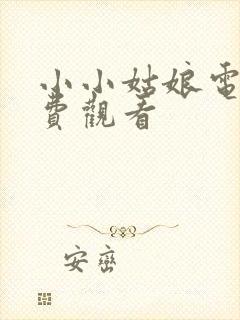 小小姑娘電
費觀看
安巒